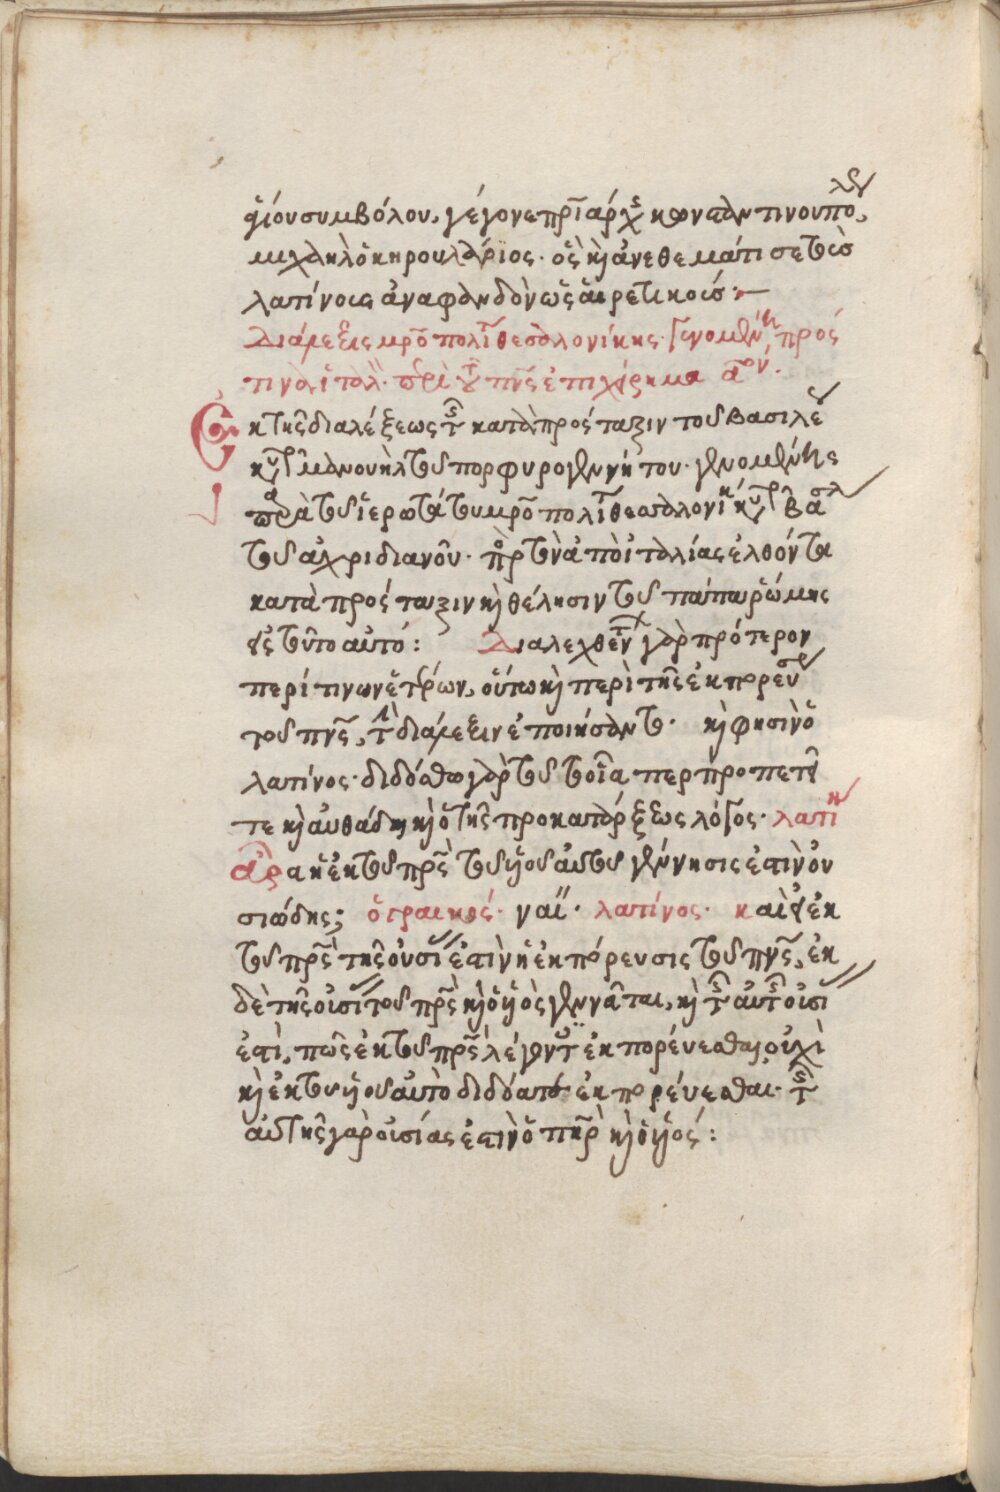 ἁγίου συμβόλου, γέγονε πριάρχης κωνσταντινουπόλεως,
μιχαὴλ ὁ κηρουλάριος· ὃς καὶ ἀνεθεμάτισε τοὺς
λατίνους ἀναφανδὸν ὡς αἱρετικούς:—
Διάλεξις μρο πολίτου θεσσαλονίκης· γενομένη πρός
τινα ἰταλ. περὶ τοῦ πνς ἐπιχείρημα αον.
Ἐκ τῆς διαλέξεως τῆς κατὰ πρόσταξιν τοῦ βασιλέως
κυροῦ μανουὴλ τοῦ πορφυρογεννήτου· γενομένης
παρὰ τοῦ ἱερωτάτου μρο πολίτου θεσσαλονίκης κυροῦ βασιλείου
τοῦ ἀχριδιανοῦ· πρὸς τὸν ἀπὸ ἰταλίας ἐλθόντα
κατὰ πρόσταξιν καὶ θέλησιν τοῦ πάπα ῥώμης
εἰς τοῦτο αὐτό: Διαλεχθέντες γὰρ πρότερον
περί τινων ἑτέρων, οὕτω καὶ περὶ τῆς ἐκπορεύσεως
τοῦ πνς, τὴν διάλεξιν ἐποιήσαντο· καὶ φησὶν ὁ
λατίνος· διδόσθω γὰρ τούτοις ἅπερ προπετεῖ
τε καὶ αὐθάδη καὶ ὁ τῆς προκατάρξεως λόγος· λατῖν
ἆρα ἡ ἐκ τοῦ πρς τοῦ υἱοῦ αὐτοῦ γέννησις ἐστὶν οὐ
σιώδης; ὁ γραικός· ναί· λατίνος· καὶ εἰ ἐκ
τοῦ πρς τῆς οὐσίας ἐστὶν ἡ ἐκπόρευσις τοῦ πνς, ἐκ
δὲ τῆς οὐσίας τοῦ πρς καὶ ὁ υἱὸς γεννᾶται, καὶ τῆς αὐτῆς οὐσίας
ἐστὶ, πῶς ἐκ τοῦ πρς λέγοντες ἐκπορεύεσθαι, οὐχὶ
καὶ ἐκ τοῦ υἱοῦ αὐτὸ διδόατε ἐκπορεύεσθαι· τῆς
αὐτῆς γὰρ οὐσίας ἐστὶν ὁ πηρ καὶ ὁ υἱός: